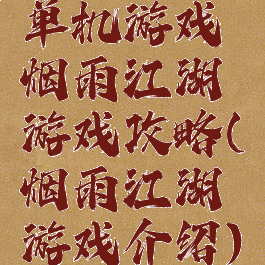 单机游戏
烟雨江湖
游戏攻略(
烟雨江湖
游戏介绍)